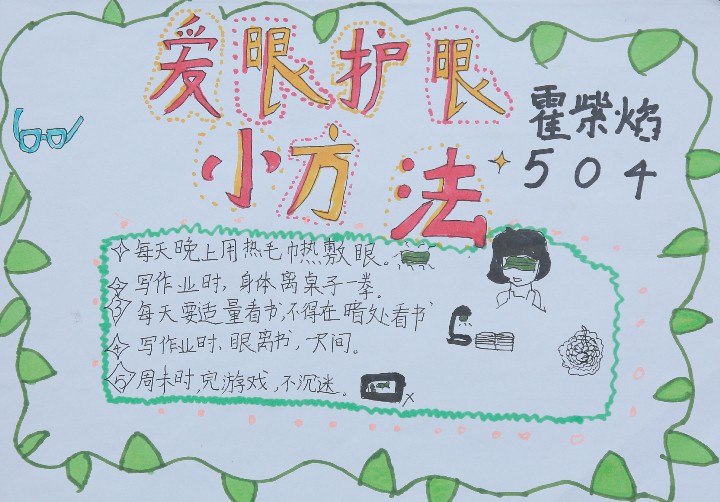 爱眼护眼
小方法
霍紫焰
504
1 每天晚上用热毛巾热敷眼。
2 写作业时,身体离桌子一拳。
3 每天要适量看书,不得在暗处看书
4 写作业时,眼离书,一尺间。
5 周末时,玩游戏,不沉迷。